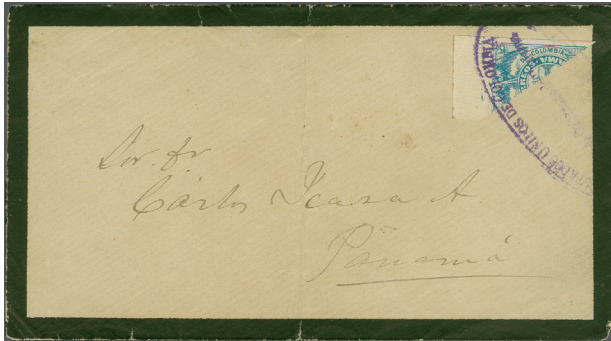 COLOMBIA
ESTADOS UNIDOS DE COLOMBIA
Sor. Dr.
Cárlos Icaza A.
Panamá